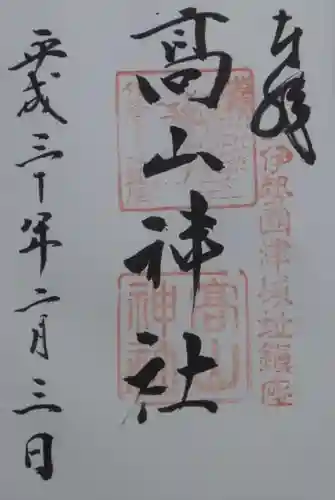 奉拝
伊勢國津城址鎮座
髙山神社
高山神社
平成三十年二月三日